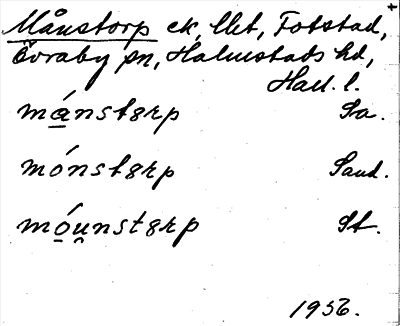 Månstorp ek, lht, Fotstad,
Övraby sn, Halmstads hd,
Hall. l.
mánstɞrp Sa.
mónstɞrp Sand.
móu̯nstɞrp St.
1956.